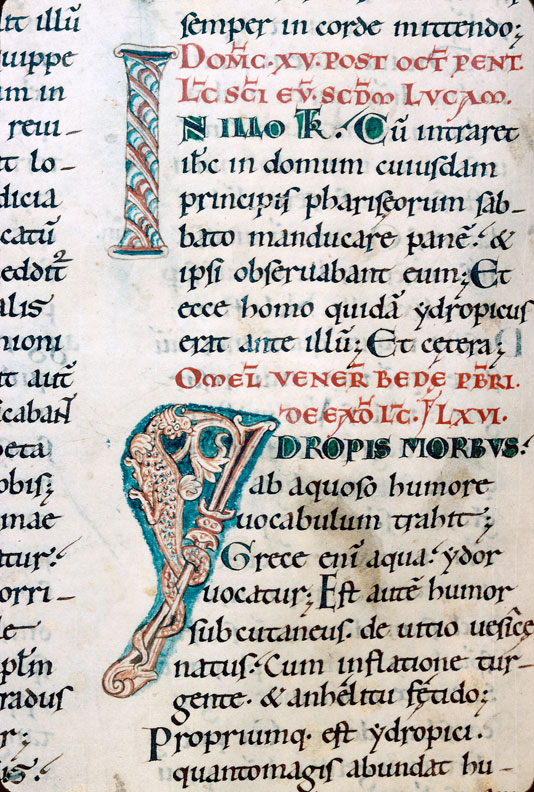 illū
uippe
um in
reui-
t lo-
dicia
catū
eddit
alis
nioni
t aut̄
icabanт
eta
obis;
mae
atur:
orri-
le
pl̄m
radus
r;
is:
semper in corde mittendo;
DOM̄C·XV·POST OCT̄ PENT̄.
LC̄ SC̄I EV̄·SCDM̄ LVCAM.
IN ILLO T̄R· Cū intraret
ih̄c in domum cuiusdam
principis phariseorum sab-
bato manducare panē: &
ipsi obseruabant eum; Et
ecce homo quidā ẏdropicus
erat ante illū; Et cętera;
OMEL̄ VENER̄ BEDE PB̄RI.
DE EAD̄ LC̄·LXVI·
YDROPIS MORBVS:
ab aquoso humore
uocabulum trahit;
Grece enī aqua: ẏdor
uocatur; Est autē humor
subcutaneus· de uitio uesicę
natus: Cum inflatione tur-
gente· & anhelitu fętido;
Propriumq· est ẏdropici·
quantomagis abundat hu-